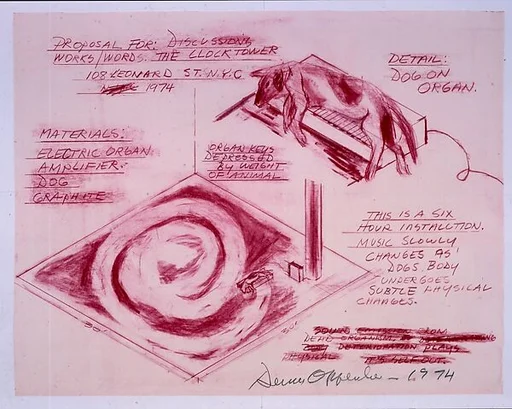 PROPOSAL FOR: DISCUSSIONS
WORKS/WORDS. THE CLOCKTOWER
108 LEONARD ST. N.Y.C
1974
DETAIL:
DOG ON
ORGAN.
MATERIALS:
ELECTRIC ORGAN
AMPLIFIER.
DOG
GRAPHITE
ORGAN KEYS
DEPRESSED
BY WEIGHT
OF ANIMAL
THIS IS A SIX
HOUR INSTALLTION.
MUSIC SLOWLY
CHANGES AS
DOGS BODY
UNDERGOES
SUBTLE PHYSICAL
CHANGES.
50'
50'
DEAD
DETERIORATION PLAYS
PHYSICAL ITSELF OUT.
Dennis Oppenheim - 1974